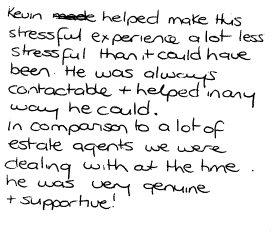 Kevin made helped make this
stressful experience a lot less
stressful than it could have
been. He was always
contactable + helped in any
way he could.
In comparison to a lot of
estate agents we were
dealing with at the time.
he was very genuine
+ supportive!